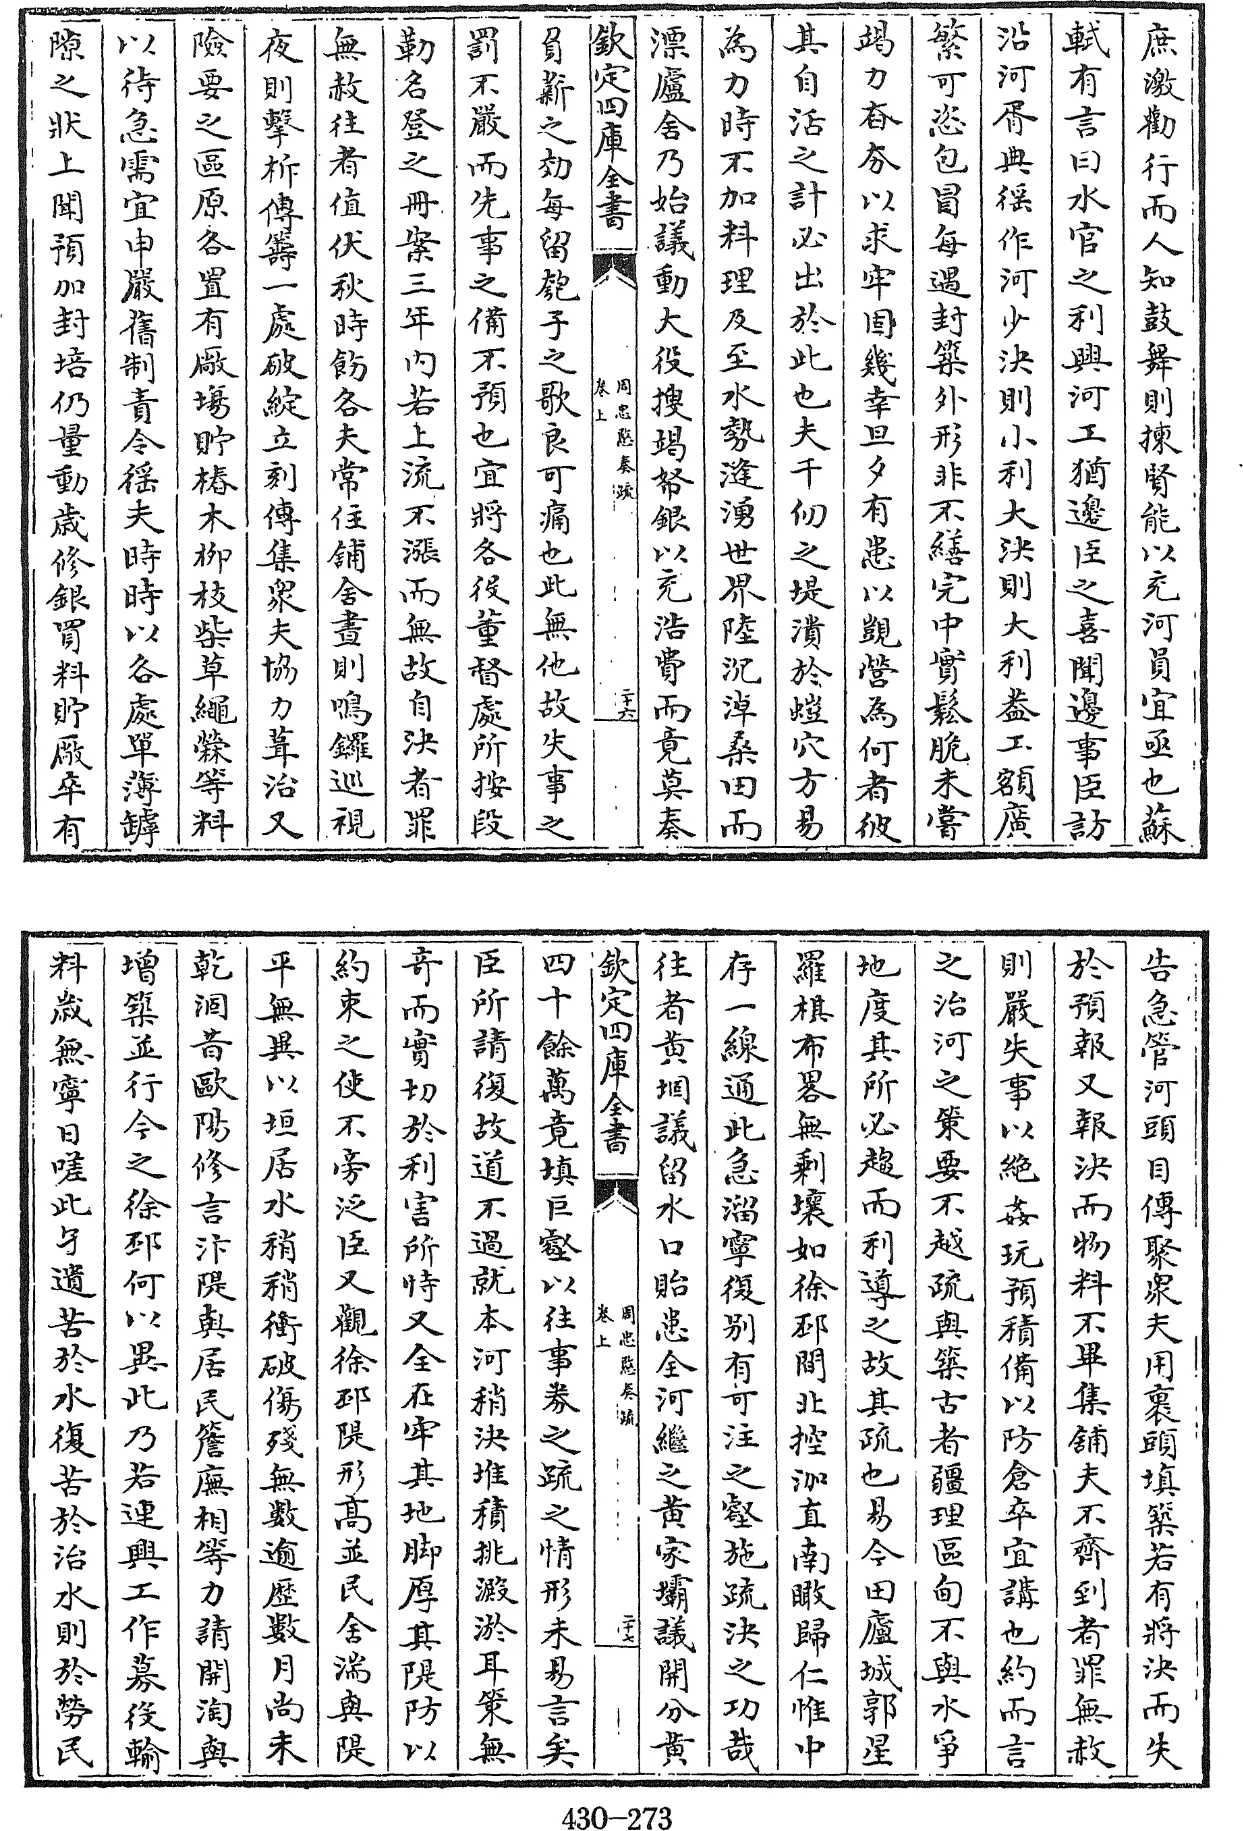 庶激勸行而人知鼓舞則揀賢能以充河員宜亟也蘇
軾有言曰水官之利興河工猶邊臣之喜聞邊事臣訪
沿河胥典徭作河少決則小利大決則大利葢工額廣
繁可恣包冒每遇封築外形非不繕完中實鬆脆未嘗
竭力畚夯以求牢固幾幸旦夕有患以覬營為何者彼
其自活之計必出於此也夫千仞之堤潰於螘穴方易
為力時不加料理及至水勢逢湧世界陸沉淖桑田而
漂廬舍乃始議動大役搜竭帑銀以充浩費而竟莫奏
欽定四庫全書
周忠愍奏疏
卷上
二十六
負薪之効每留匏子之歌良可痛也此無他故失事之
罰不嚴而先事之備不預也宜將各役董督處所按段
勒名登之冊案三年内若上流不漲而無故自決者罪
無赦往者值伏秋時飭各夫常住鋪舍晝則鳴鑼巡視
夜則擊柝傳籌一處破綻立刻傳集衆夫協力葺治又
險要之區原各置有廠塲貯樁木柳枝柴草繩檾等料
以待急需宜申嚴舊制責令徭夫時時以各處單薄罅
隙之狀上聞預加封培仍量動歲修銀買料貯廠卒有
告急管河頭目傳聚衆夫用裹頭填築若有將決而失
於預報又報決而物料不畢集鋪夫不齊到者罪無赦
則嚴失事以絶姦玩預積備以防倉卒宜講也約而言
之治河之策要不越疏與築古者疆理區甸不與水爭
地度其所必趨而利導之故其疏也易今田廬城郭星
羅棋布畧無剩壤如徐邳間北控泇直南瞰歸仁惟中
存一線通此急溜寧復别有可注之壑施疏決之功哉
往者黄堌議留水口貽患全河繼之黄家壩議開分黄
欽定四庫全書
周忠愍奏疏
卷上
二十七
四十餘萬竟填巨壑以往事券之疏之情形未易言矣
臣所請復故道不過就本河稍決堆積挑澱淤耳策無
奇而實切於利害所恃又全在牢其地脚厚其隄防以
約束之使不旁泛臣又觀徐邳隄形髙並民舍湍與隄
平無異以垣居水稍稍衝破傷殘無數逾歷數月尚未
乾涸昔歐陽修言汴隄與居民簷廡相等力請開淘與
增築並行今之徐邳何以異此乃若連興工作募役輸
料歲無寧日嗟此孑遺苦於水復苦於治水則於勞民
430-273